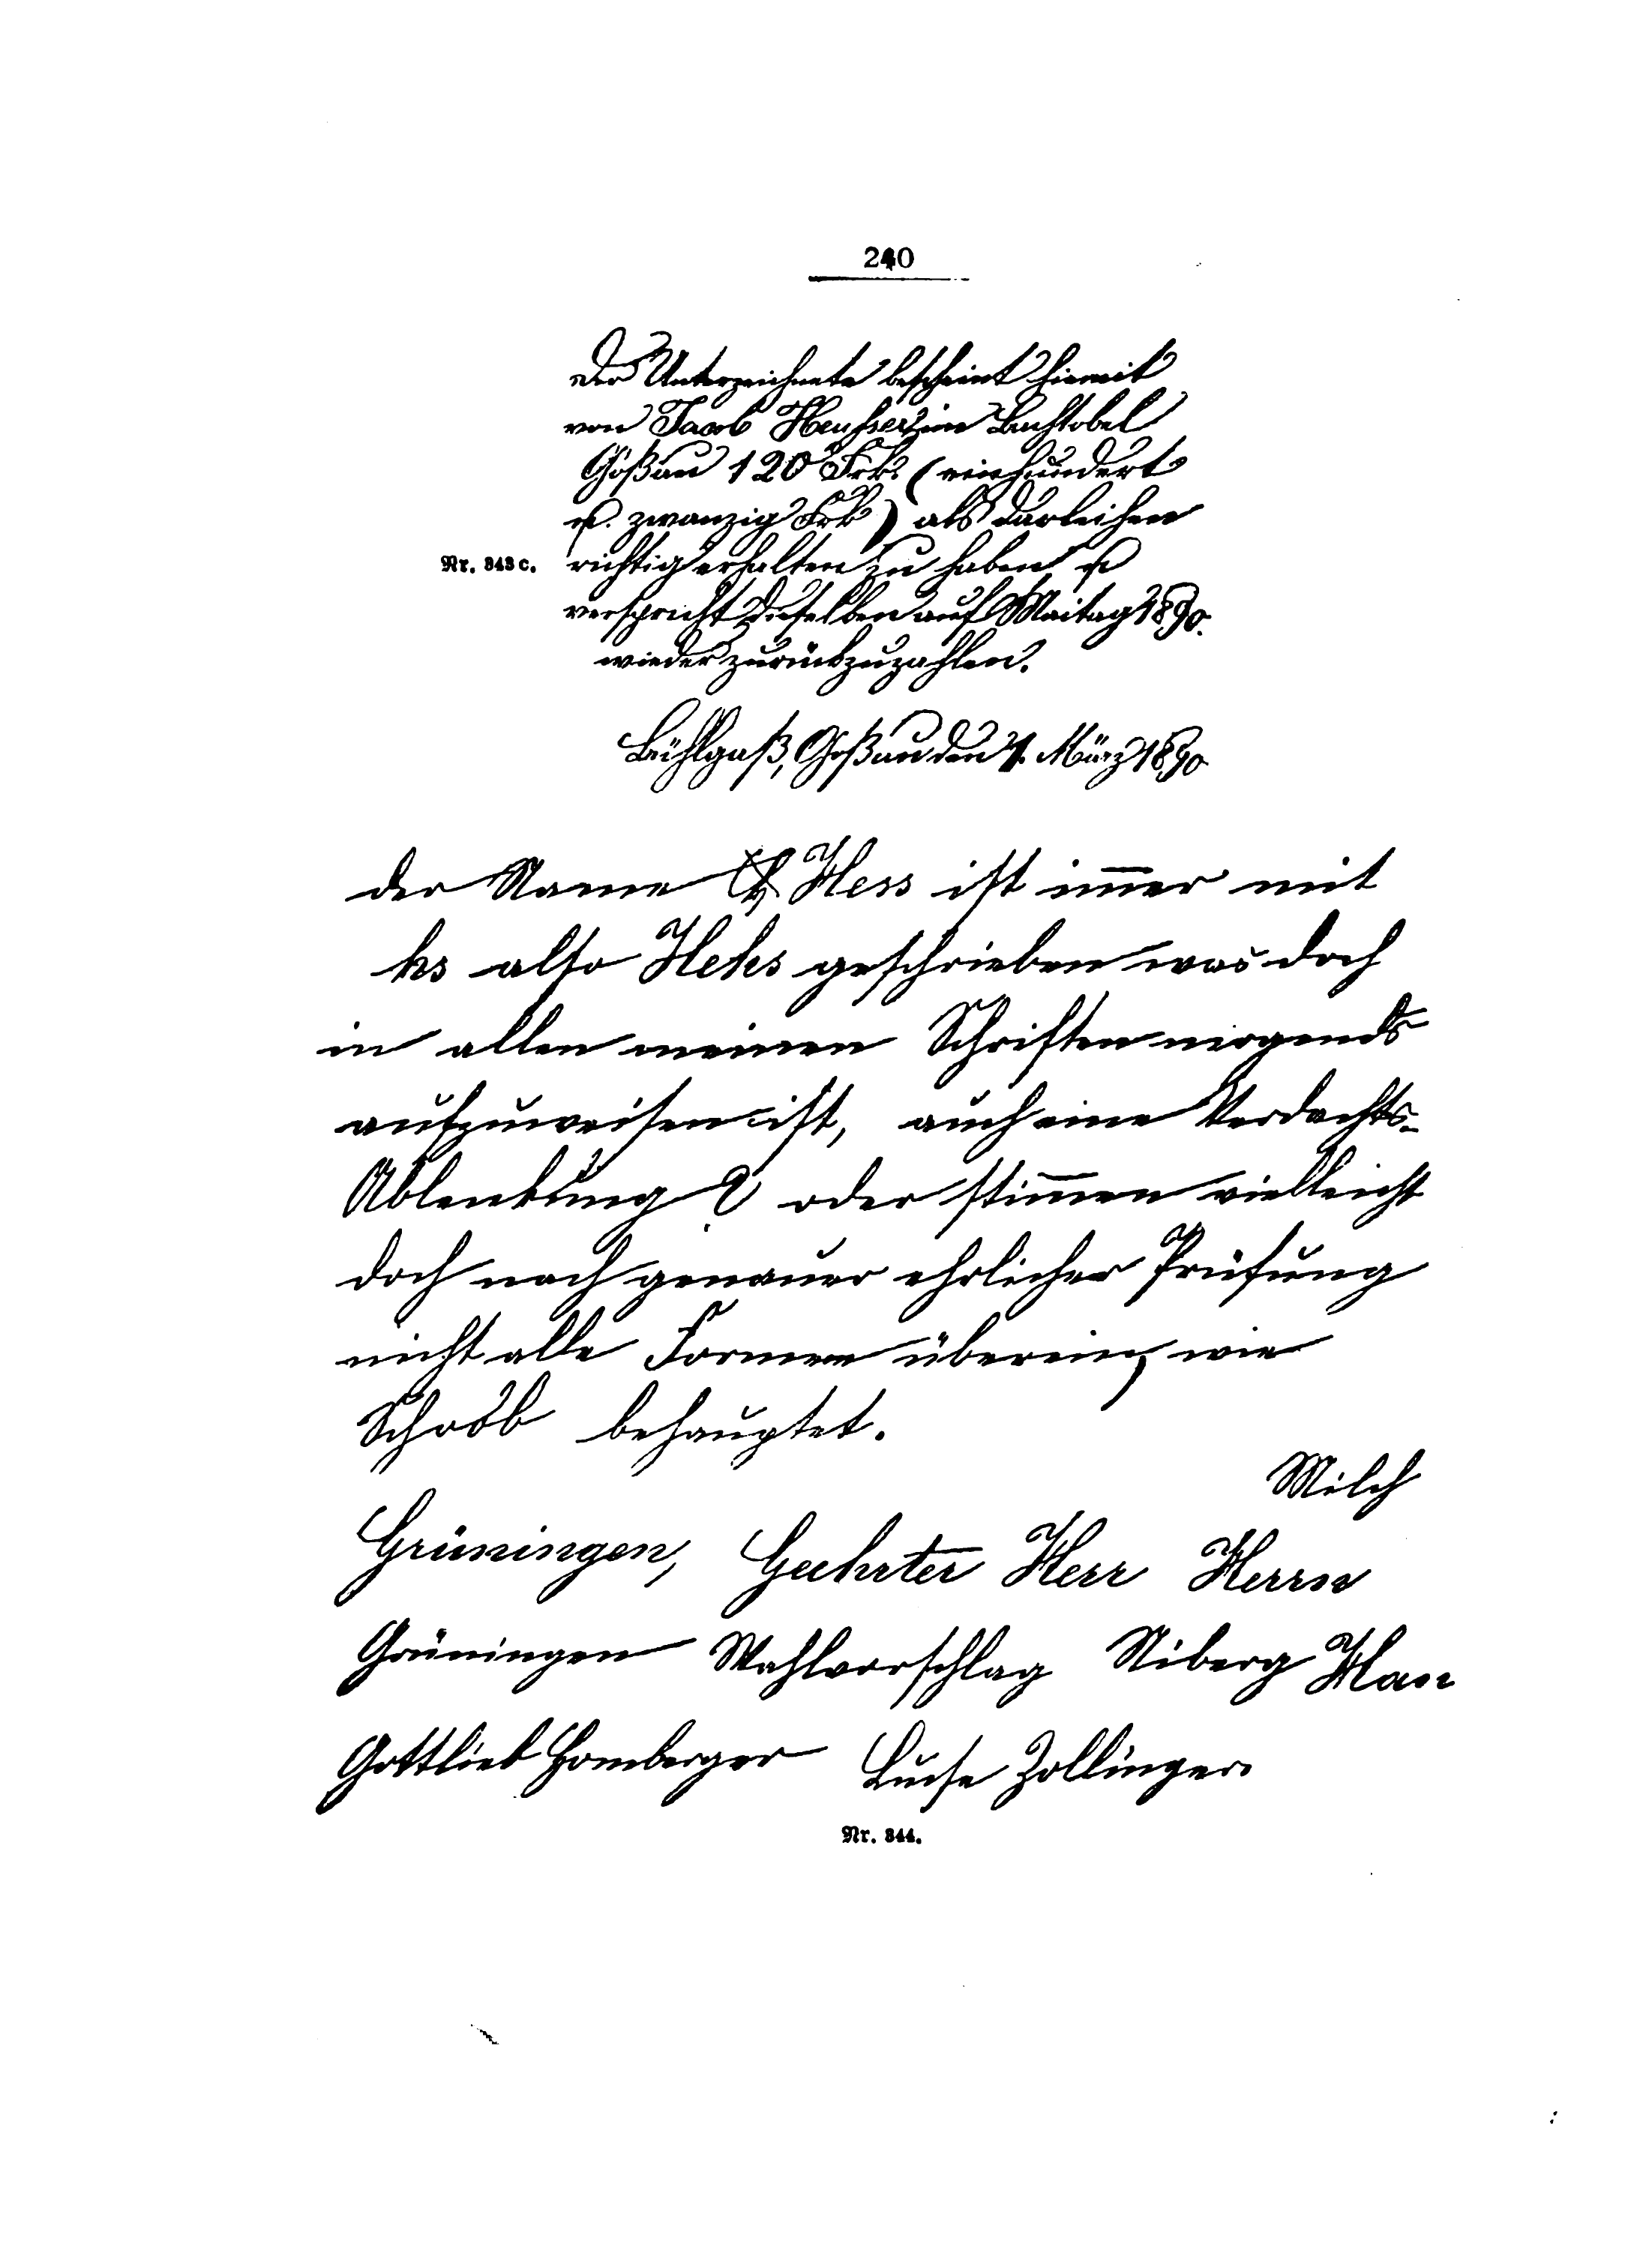 240
Der Unterzeichnete bescheint hiermit
von Jacob Heusser im Bachtobel
Goßau 120 Frk. (einhundert
u. zwanzig Frk) als Darleihen
Nr. 343 c. richtig erhalten zu haben u
verspricht dieselben auf Maitag 1890.
wieder zurückzuzahlen.
Bühlgaß, Goßau den 1. März 1890
der Name Hess ist im̄er mit
hs also Hehs geschrieben was doch
in allen meinen Schriften nirgends
aufzuweisen ist, auch eine Verdachts-
Ablenkung? oder stim̄en vielleicht
doch nach genauer ehrlicher Prüfung
nicht alle Formen überein, wie
Schoob behauptet.
Milch
Grüningen, Geehrter Herr Herrn
Grüningen Wahlvorschlag Niberg Han
Gottlieb Homberger Luise Zollinger
Nr. 344.